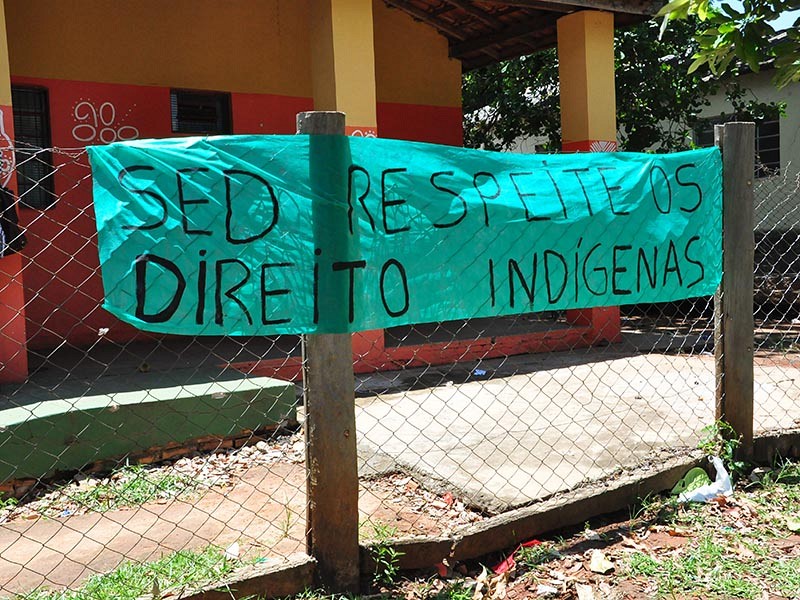 SED RESPEITE OS
DIREITO INDÍGENAS